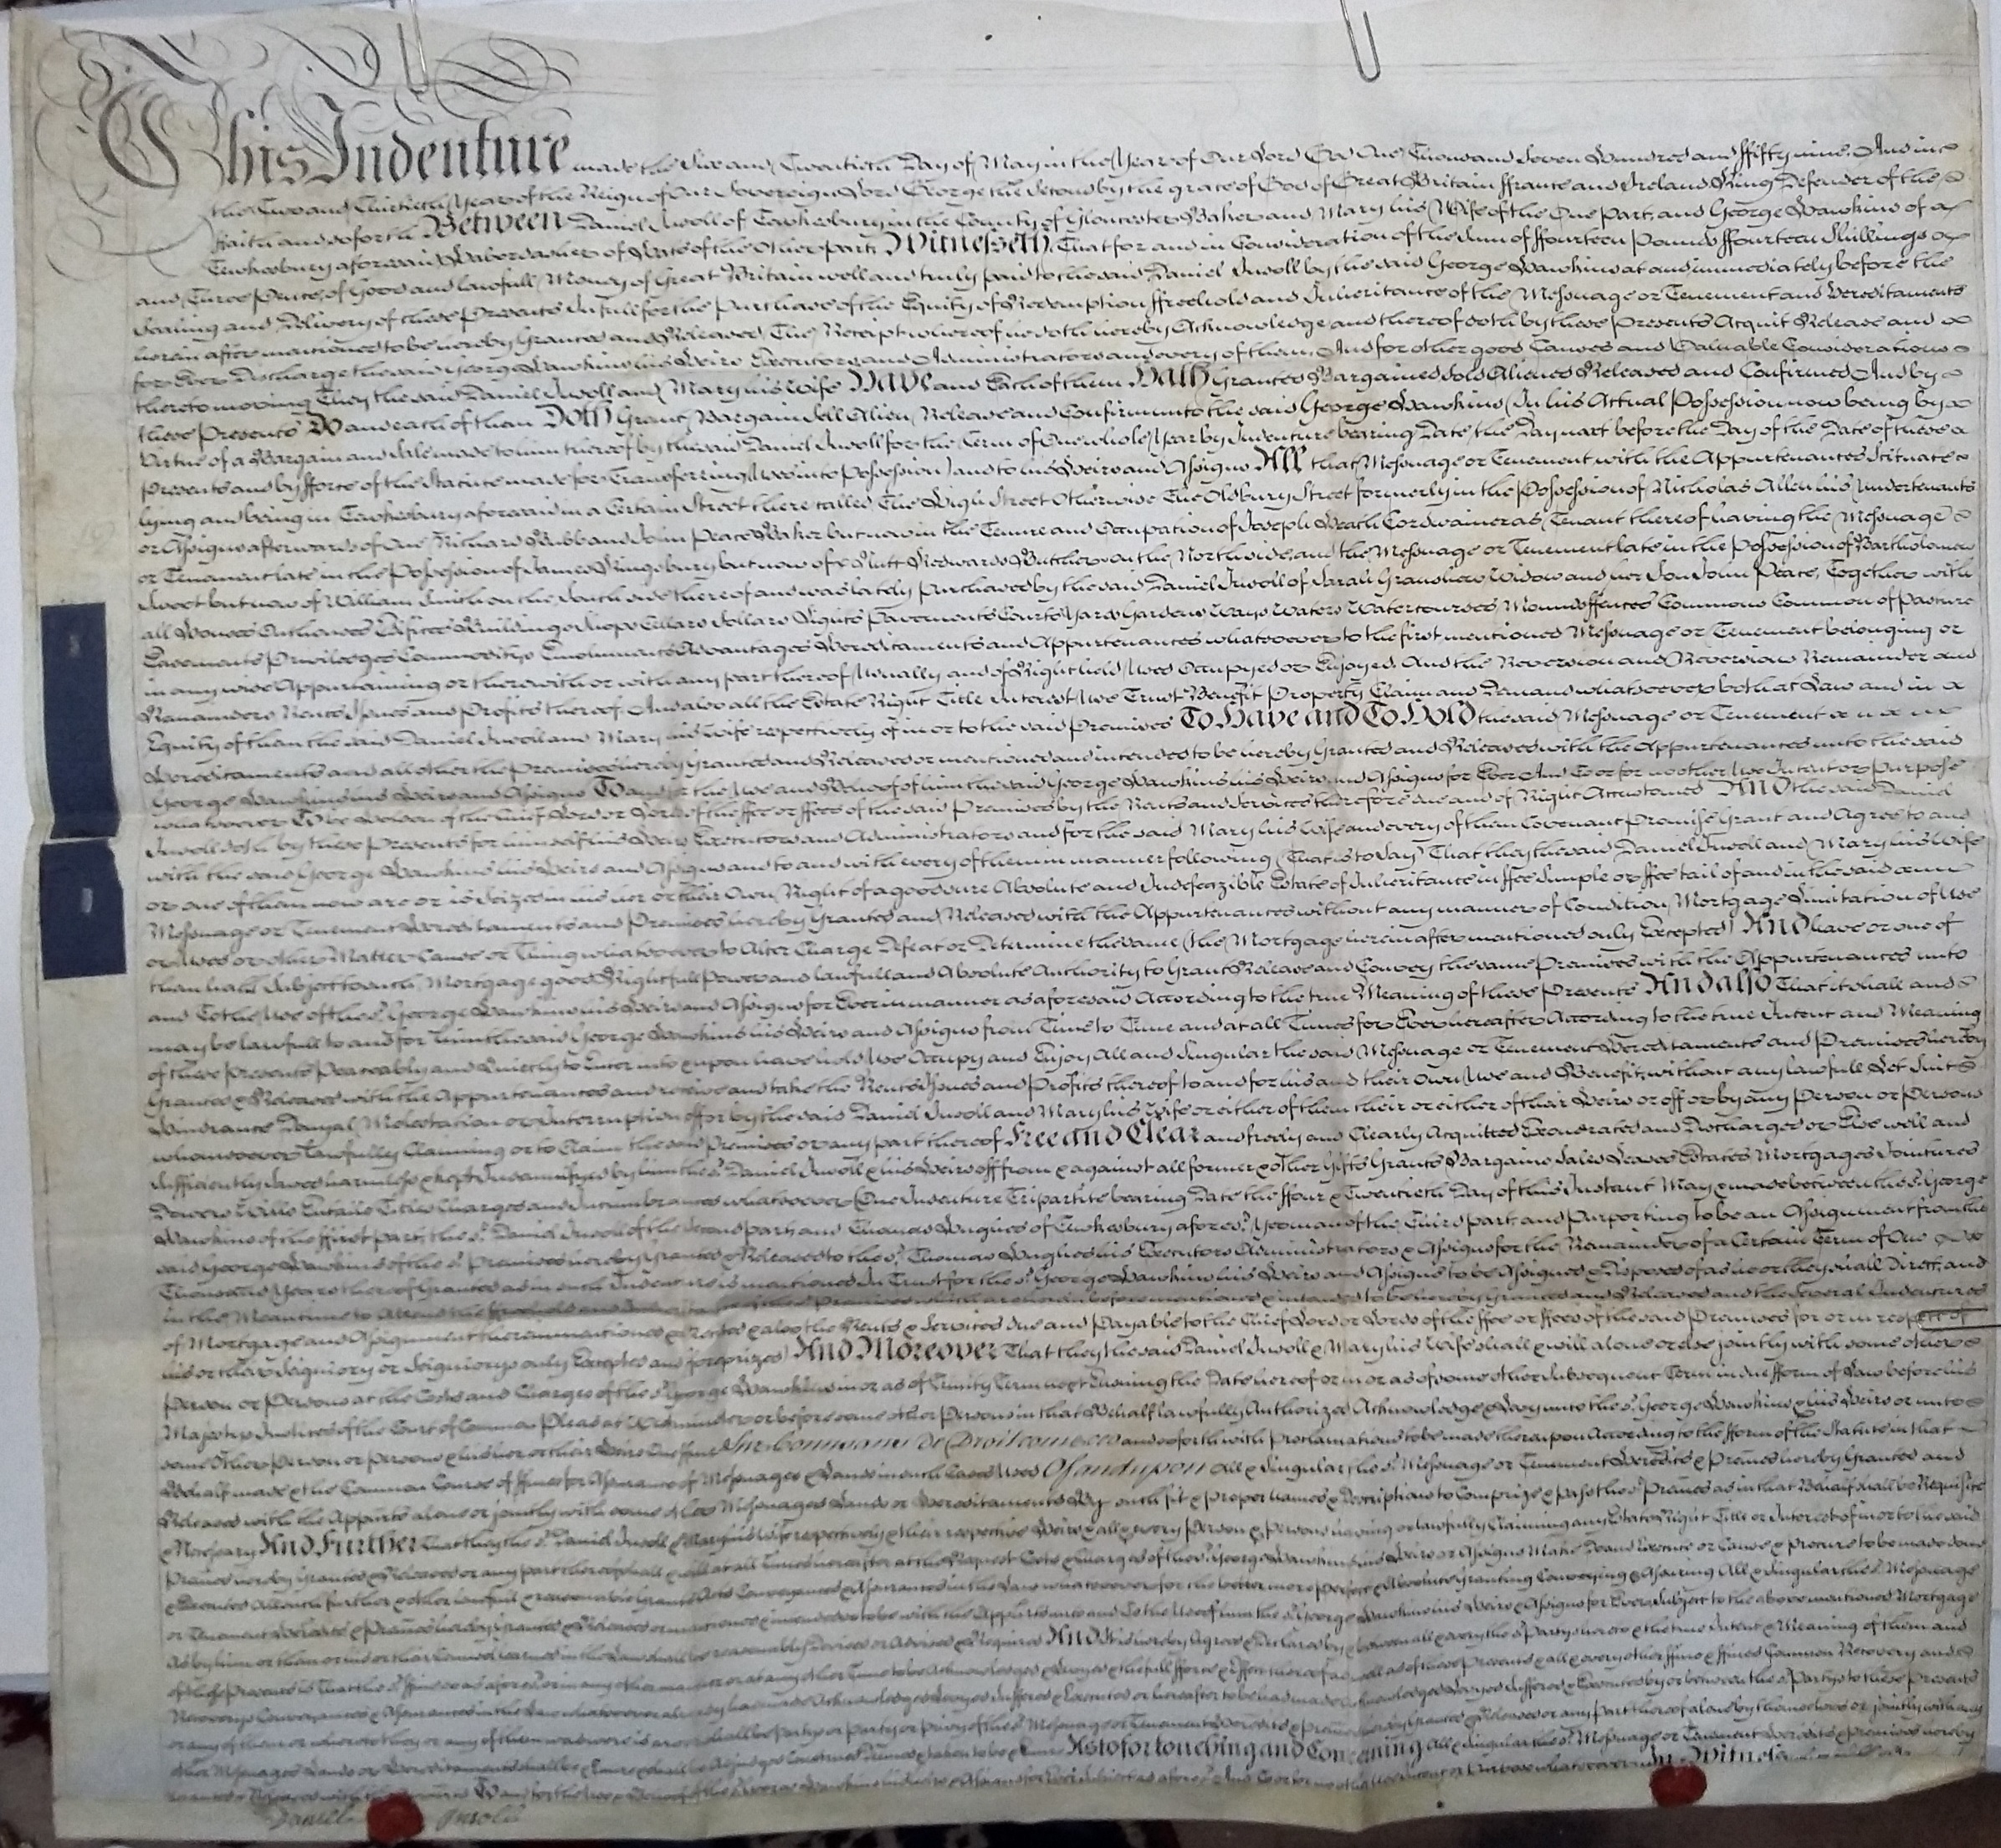 This Indenture made the Six and Twentieth Day of May in the Year of Our Lord God One Thousand Seven Hundred and ffifty nine. And in
the Two and Thirtieth Year of the Reign of Our Sovereign Lord George the Second by the grace of God of Great Britain ffrance and Ireland King Defender of the
ffaith and soforth Between Daniel Insoll of Tewkesbury in the County of Gloucester Baker and Mary his Wife of the One Part, and George Hawkins of
Tewkesbury aforesaid Haberdasher of Hats of the Other part, Witnesseth, That for and in Consideration of the Sum of ffourteen Pounds ffourteen Shillings
and Three Pence, of Good and lawfull Money of Great Britain well and truly paid to the said Daniel Insoll by the said George Hawkins at and immediately before the
Sealing and Delivery of these Presents In full for the Purchase of the Equity of Redemption ffreehold and Inheritance of the Messuage or Tenement and Hereditaments
herein after mentioned to be hereby Granted and Released, The Receipt whereof he doth hereby Acknowledge and thereof doth by these Presents Acquit Release and
for Ever Discharge the said George Hawkins his Heirs Executors and Administrators and every of them, And for other good Causes and Valuable Considerations
thereto moving They the said Daniel Insoll and Mary his Wife Have and Each of them Hath Granted Bargained Sold Aliened Released and Confirmed And by
these Presents Do and each of them Doth Grant, Bargain Sell Alien, Release and Confirm unto the said George Hawkins (In his Actual Possession now being by
Virtue of a Bargain and Sale made to him thereof by the said Daniel Insoll for the Term of One whole Year by Indenture bearing Date the Day next before the Day of the Date of these
Presents and by fforce of the Statute made for Transferring Uses into Possession) and to his Heirs and Assigns All that Messuage or Tenement with the Appurtenances Scituate
lying and being in Tewkesbury aforesaid in a Certain Street there called The High Street Otherwise The Oldbury Street formerly in the Possession of Nicholas Allen his Undertenants
or Assigns afterwards of One Richard Stubb and John Peace Baker but now in the Tenure and Occupation of Joseph Heath Cordwainer as Tenant thereof having the Messuage
or Tenement late in the Possession of James Kingsbury but now of Edwards Butcher on the North side, and the Messuage or Tenement late in the Possession of Bartholomew
Sweet but now of William Smith on the South side thereof and was lately Purchased by the said Daniel Insoll of Sarah Widow and her Son John Peace, Together with
all Houses Outhouses Edifices Buildings Shops Cellars Sollars Lights Pavements Courts Yards Gardens Ways Waters Watercourses Mounds ffences Commons Common of Pasture
Easements Priviledges Commoditys Emoluments Advantages Hereditaments and Appurtenances whatsoever to the first mentioned Messuage or Tenement belonging or
in any wise Appurtaining or therewith or with any part thereof Usually and of Right held Used Occupyed or Enjoyed. And the Reversion and Reversions Remainder and
Remainders Rents Issues and Profits thereof. And also all the Estate Right Title Interest Use Trust Benefit Property Claim and Demand whatsoever both at Law and in
Equity of them the said Daniel Insoll and Mary his Wife respectively of in or to the said Premises To Have and To Hold the said Messuage or Tenement
Hereditaments and all other the Premises hereby Granted and Released or mentioned and intended to be hereby Granted and Released with the Appurtenances unto the said
George Hawkins his Heirs and Assigns To and for the Use and Behoof of him the said George Hawkins his Heirs and Assigns for Ever And To or for no other Use Intent or Purpose
whatsoever To be holden of the Chief Lord or Lords of the ffee or ffees of the said Premises by the Rents and Services therefore due and of Right Accustomed And the said Daniel
Insoll doth by these Presents for himself his Heirs Executors and Administrators and for the said Mary his Wife and every of them Covenant Promise Grant and Agree to and
with the said George Hawkins his Heirs and Assigns and to and with every of them in manner following (That is to say) That they the said Daniel Insoll and Mary his Wife
or one of them now are or is Seized in his her or their Own Right of a good sure Absolute and Indefeazible Estate of Inheritance in ffee Simple or ffee tail of and in the said
Messuage or Tenement Hereditaments and Premises hereby Granted and Released with the Appurtenances without any manner of Condition Mortgage Limitation of Use
or Uses or other Matter Cause or Thing whatsoever to Alter Charge Defeat or Determine the same (the Mortgage herein after mentioned only Excepted) And have or one of
them hath Subject to such Mortgage good Rightfull Power and lawfull and Absolute Authority to Grant Release and Convey the same Premises with the Appurtenances unto
and To the Use of the sd. George Hawkins his Heirs and Assigns for Ever in manner as aforesaid According to the true Meaning of these Presents And also That it shall and
may be lawfull to and for him the said George Hawkins his Heirs and Assigns from Time to Time and at all Times for Ever hereafter According to the true Intent and Meaning
of these Presents Peaceably and Quietly to Enter into & upon have hold Use Occupy and Enjoy All and Singular the said Messuage or Tenement Hereditaments and Premises hereby
Granted & Released with the Appurtenances and receive and take the Rents Issues and Profits thereof to and for his and their Own Use and Benefit, without any lawfull Let Suit
Hindrance Denyal Molestation or Interruption of or by the said Daniel Insoll and Mary his Wife or either of them their or either of their Heirs or of or by any Person or Persons
whomsoever lawfully Claiming or to Claim the said Premises or any part thereof Free and Clear and freely and Clearly Acquitted Exonerated and Discharged or Else well and
Sufficiently Saved harmless & kept Indemnifyed by him the sd. Daniel Insoll & his Heirs off from & against all former & other Gifts Grants Bargains Sales Leases Estates Mortgages Jointures
Dowers Wills Entails Titles Charges and Incumbrances whatsoever (One Indenture Tripartite bearing Date the ffour & Twentieth Day of this Instant May & made between the sd. George
Hawkins of the ffirst part, the sd. Daniel Insoll of the Second part, and Thomas Hughes of Tewkesbury aforesd. Yeoman of the Third part, and Purporting to be an Assignment from the
said George Hawkins of the sd. Premises hereby Granted & Released to the sd. Thomas Hughes his Executors Administrators & Assigns for the Remainder of a Certain Term of One
Thousand Years thereof Granted as in such Indenture is mentioned In Trust for the sd. George Hawkins his Heirs and Assigns to be Assigned & Disposed of as he or they shall Direct, and
in the Meantime to Attend the ffreehold and Inheritance of the Premises which are herein before mentioned & intended to be hereby Granted and Released and the Several Indentures
of Mortgage and Assignment therein mentioned & recited & also the Rents & Services due and Payable to the Chief Lord or Lords of the ffee or ffees of the said Premises for or in respect of
his or their Seigniory or Seigniorys only Excepted and foreprized) And Moreover That they the said Daniel Insoll & Mary his Wife shall & will alone or else jointly with some other
Person or Persons at the Costs and Charges of the sd. George Hawkins in or as of Trinity Term next Ensuing the Date hereof or in or as of some other Subsequent Term in due fform of Law before his
Majestys Justices of the Court of Common Pleas at Westminster or before some other Persons in that Behalf lawfully Authorized Acknowledge & Levy unto the sd. George Hawkins & his Heirs or unto
some Other Person or Persons & his her or their Heirs One ffine Sur Conuzans de Droit come ceo and soforth with Proclamations to be made thereupon According to the fform of the Statute in that
Behalf made & the Common Course of ffines for Assurance of Messuages & Lands in such Cases Used Of and upon all & Singular the sd. Messuage or Tenement Heredits & Premes hereby Granted and
Released with the Appurts alone or jointly with some other Messuages Lands or Hereditaments By such fit & proper names & Descriptions to Comprize & pass the sd. Premes as in that Behalf shall be Requisite
& Necessary And Further That they the sd. Daniel Insoll & Mary his Wife respectively & their respective Heirs & all & every Person & Persons having or lawfully Claiming any Estate Right Title or Interest of in or to the said
Premes hereby Granted & Released or any part thereof shall & will at all Times hereafter at the Request Costs & Charges of the sd. George Hawkins his Heirs or Assigns Make Do and Execute or Cause & Procure to be made done
& Executed All such further & other lawful & reasonable Grants Acts Conveyances & Assurances in the Law whatsoever for the better more perfect & Absolute Granting Conveying & Assuring All & Singular the sd. Messuage
or Tenement Heredits & Premes hereby Granted & Released or mentioned & intended to be with the Appurts unto and To the Use of him the sd. George Hawkins his Heirs & Assigns for Ever Subject to the above mentioned Mortgage
As by him or them or his or their Council learned in the Law shall be reasonably Devised or Advised & Required And It is hereby Agreed & Declared by & between all & every the sd. Partys hereto & the true Intent & Meaning of them and
of these Presents is That the sd. ffine so as aforesd. or in any other manner or at any other Time to be Acknowledged & Levyed & the full fforce & Effect thereof as well as of these Presents & all & every other ffine & ffines Common Recovery and
Recoverys Conveyances & Assurances in the Law whatsoever already had made Acknowledged Levyed Suffered & Executed or hereafter to be had made Acknowledged Levyed Suffered & Executed by or between the sd. Partys to these Presents
or any of them or whereto they or any of them was were is are or shall be Party or Partys or privy of the sd. Messuage or Tenement Heredits & Premes hereby Granted & Released or any Part thereof alone by themselves or jointly with any
other Messuages Lands or Hereditaments shall be & Enure & shall be Adjudged Construed Deemed & taken to be & Enure As to for touching and Concerning all & Singular the sd. Messuage or Tenement Heredits & premises hereby
Granted & Released with the Appurts To and for the Use & Behoof of the sd. George Hawkins his Heirs & Assigns for Ever Subject as aforesd. And To or for no other Use Intent or Purpose whatsoever In Witness
Daniel Insoll